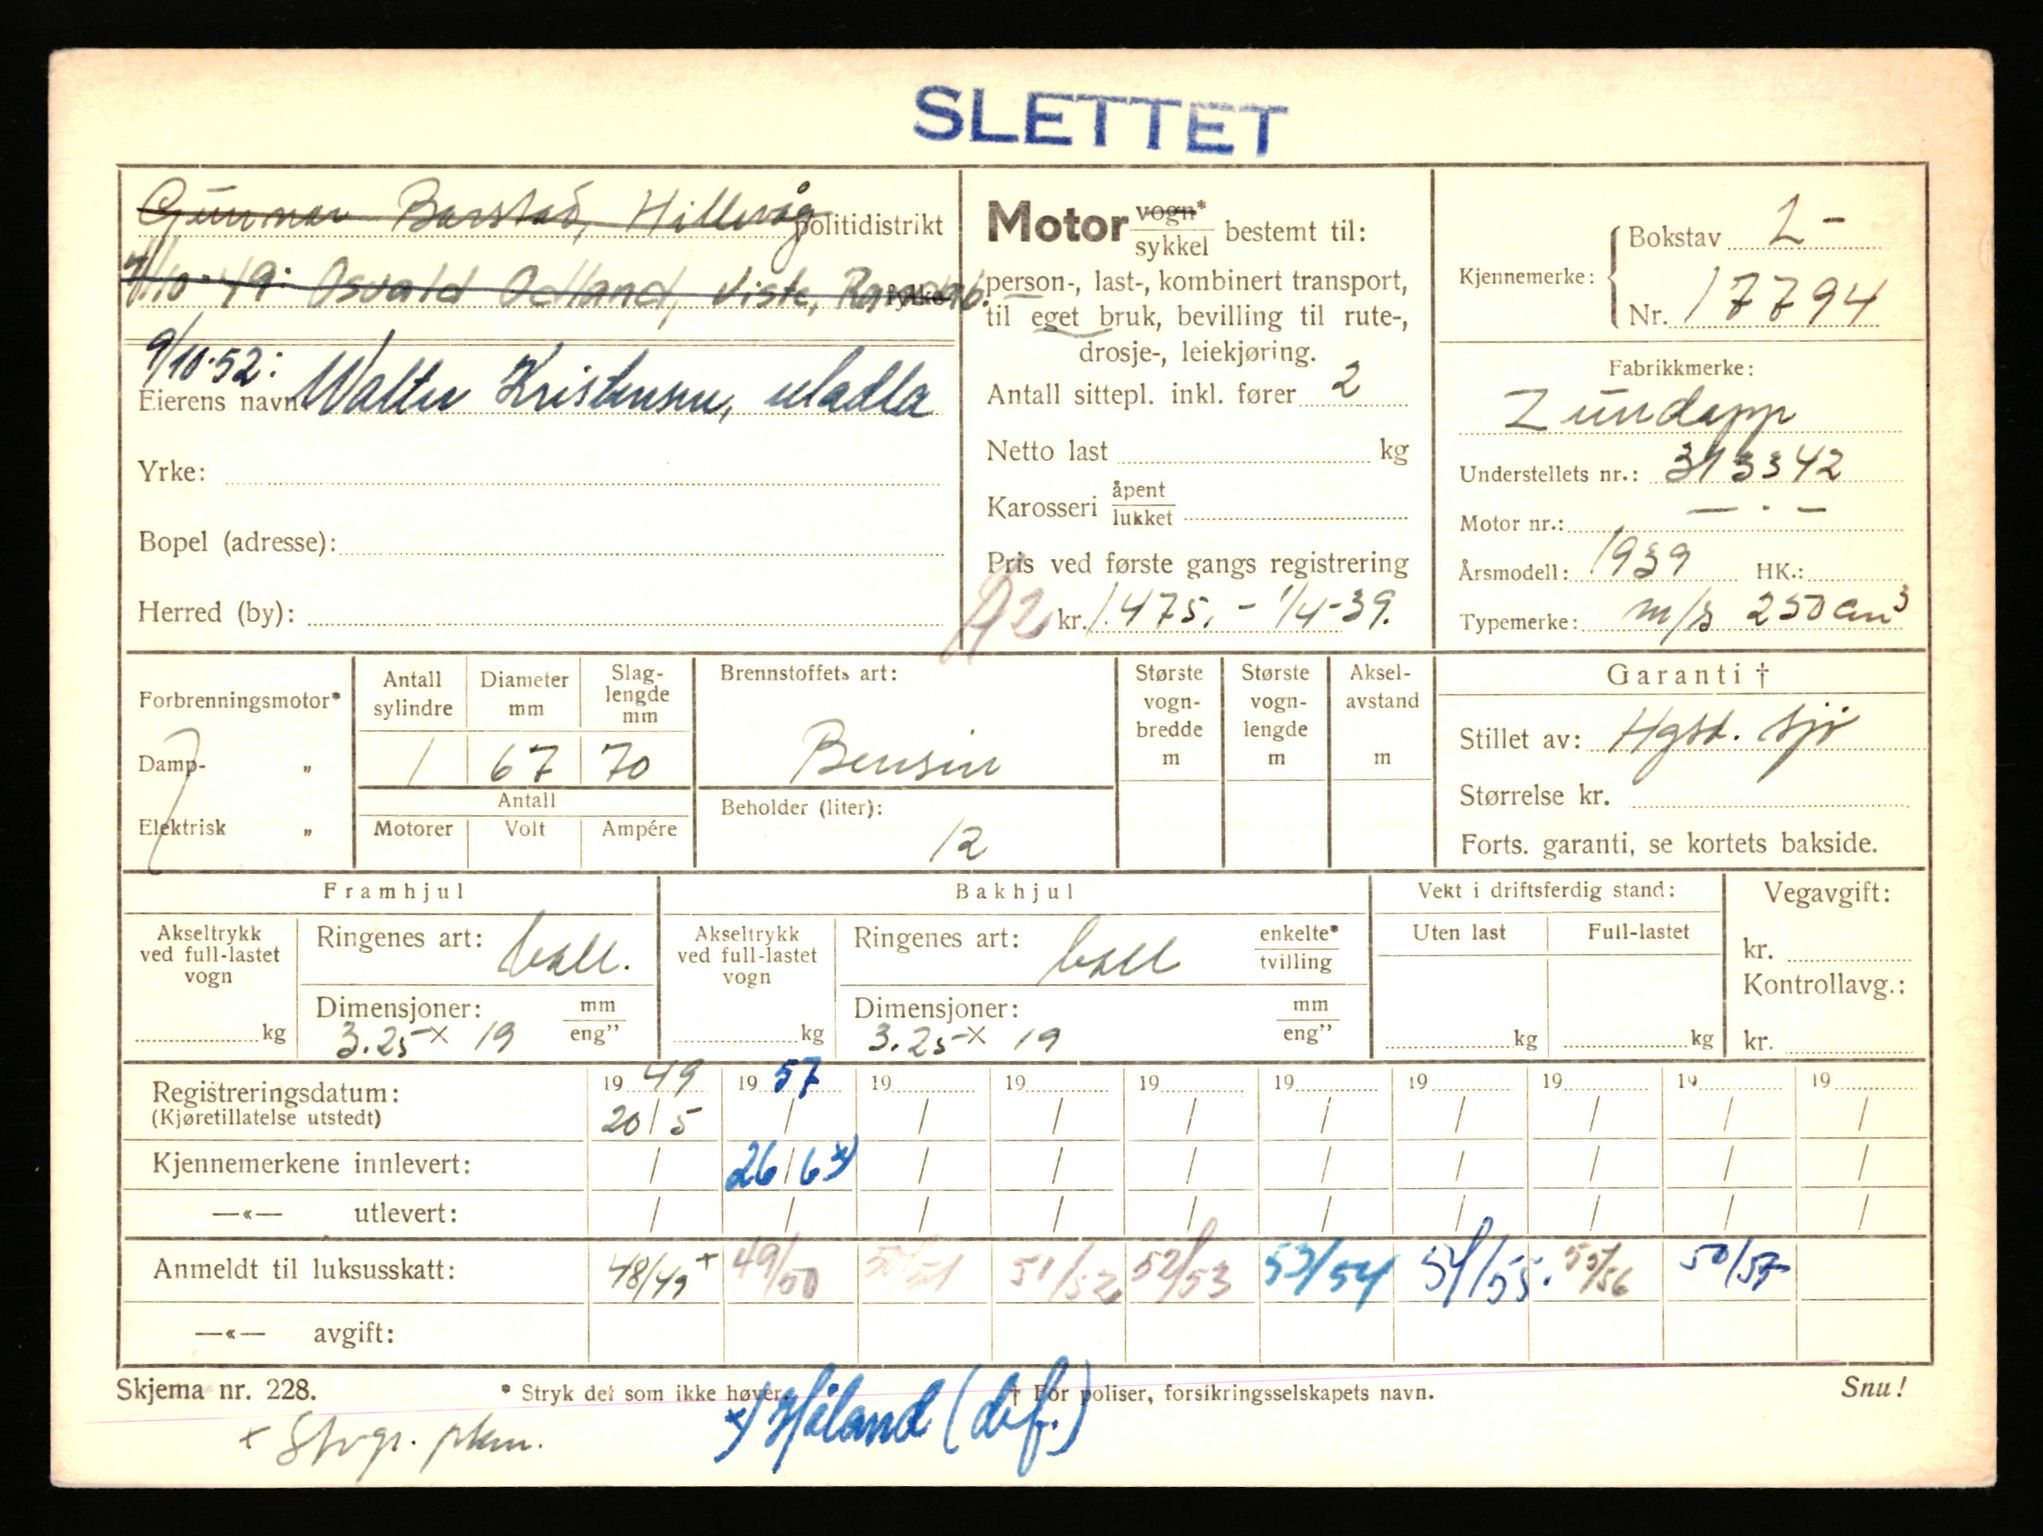 SLETTET
Gunnar Barstad, Hillevåg politidistrikt
10-49: Osvald Odland, Viste, Randab. fylke
9/10-52:
Eierens navn Walter Kristensen, Madla
Yrke:
Bopel (adresse):
Herred (by):
Motor vogn* sykkel bestemt til:
person-, last-, kombinert transport,
til eget bruk, bevilling til rute-,
drosje-, leiekjøring.
Antall sittepl. inkl. fører 2
Netto last kg
Karosseri åpent lukket
Pris ved første gangs registrering
kr. 1.475.- 1/4-39.
Kjennemerke: Bokstav L-
Nr. 17794
Fabrikkmerke:
Zundapp
Understellets nr.: 313342
Motor nr.: — · —
Årsmodell: 1939 HK.:
Typemerke: m/s 250 cm3
Forbrenningsmotor*
Damp- „
Elektrisk „
Antall sylindre Diameter mm Slag-lengde mm
1 67 70
Antall
Motorer Volt Ampére
Brennstoffets art:
Bensin
Beholder (liter):
12
Største vogn-bredde m
Største vogn-lengde m
Aksel-avstand m
Garanti †
Stillet av: Hgsd. Sjø
Størrelse kr.
Forts. garanti, se kortets bakside.
Framhjul
Akseltrykk ved full-lastet vogn kg
Ringenes art: ball.
Dimensjoner: mm eng”
3.25 x 19
Bakhjul
Akseltrykk ved full-lastet vogn kg
Ringenes art: ball enkelte* tvilling
Dimensjoner: mm eng”
3.25 x 19
Vekt i driftsferdig stand:
Uten last Full-lastet
kg kg
Vegavgift:
kr.
Kontrollavg.:
kr.
Registreringsdatum: 19 49 19 57 19 19 19 19 19 19 19 19
(Kjøretillatelse utstedt) 20/5 / / / / / / / / /
Kjennemerkene innlevert: / 26/6 x) / / / / / / / /
—«— utlevert: / / / / / / / / / /
Anmeldt til luksusskatt: 48/49 + 49/50 50/51 51/52 52/53 53/54 54/55. 55/56 56/57
—«— avgift:
Skjema nr. 228. * Stryk det som ikke høver. † For poliser, forsikringsselskapets navn. Snu!
x) Håland (def.)